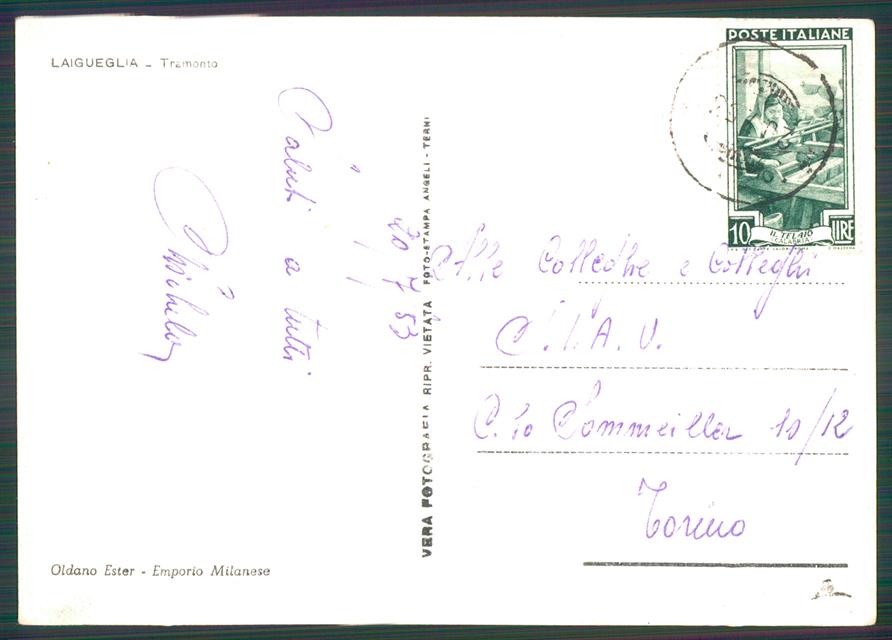 LAIGUEGLIA - Tramonto
Saluti a tutti
20 7 53
VERA FOTOGRAFIA RIPR. VIETATA FOTO-STAMPA ANGELI - TERNI
POSTE ITALIANE
10 IL TELAIO LIRE
CALABRIA
Alle Colleghe e Colleghi
S.I.A.V.
C.so Sommeiller 10/12
Torino
Oldano Ester - Emporio Milanese